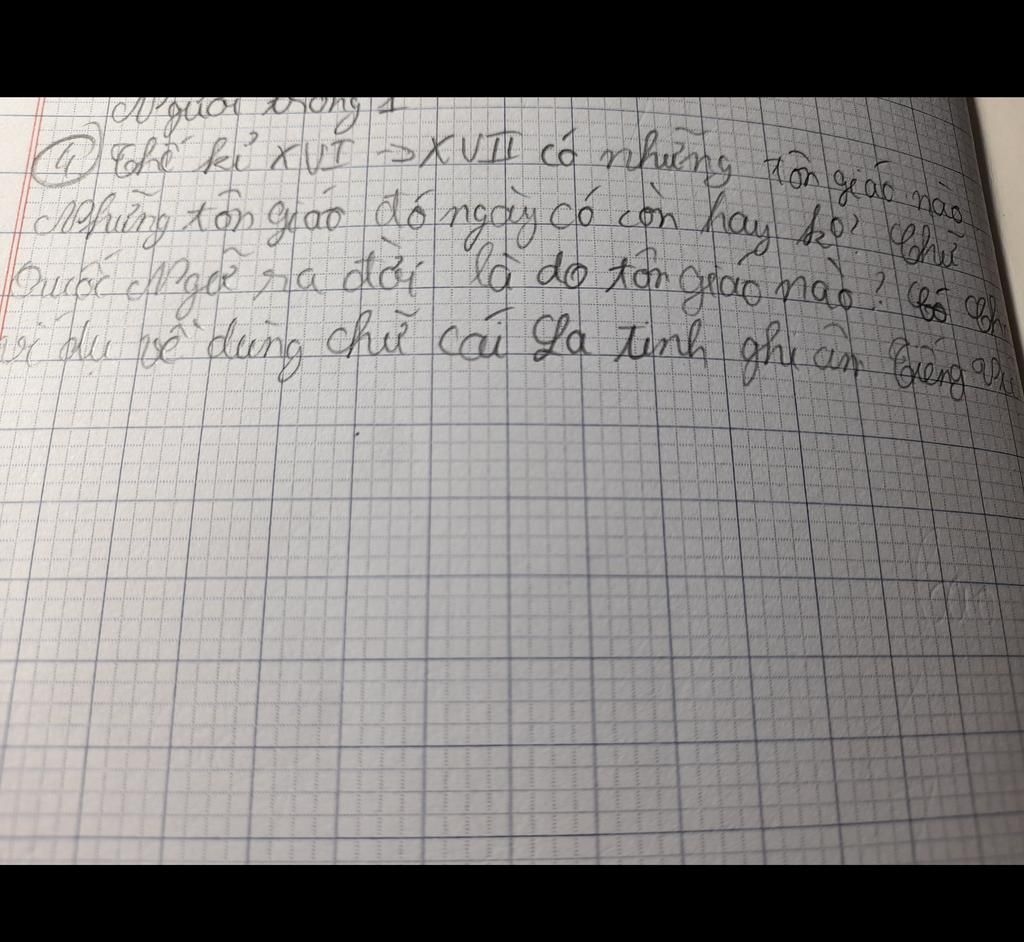 Người trong 1
④ Thế kỉ XVI → XVII có những tôn giáo nào
Những tôn giáo đó ngày có còn hay ko? Chữ
Quốc Ngữ ra đời là do tôn giáo nào?
ví dụ về dùng chữ cái La tinh ghi âm tiếng